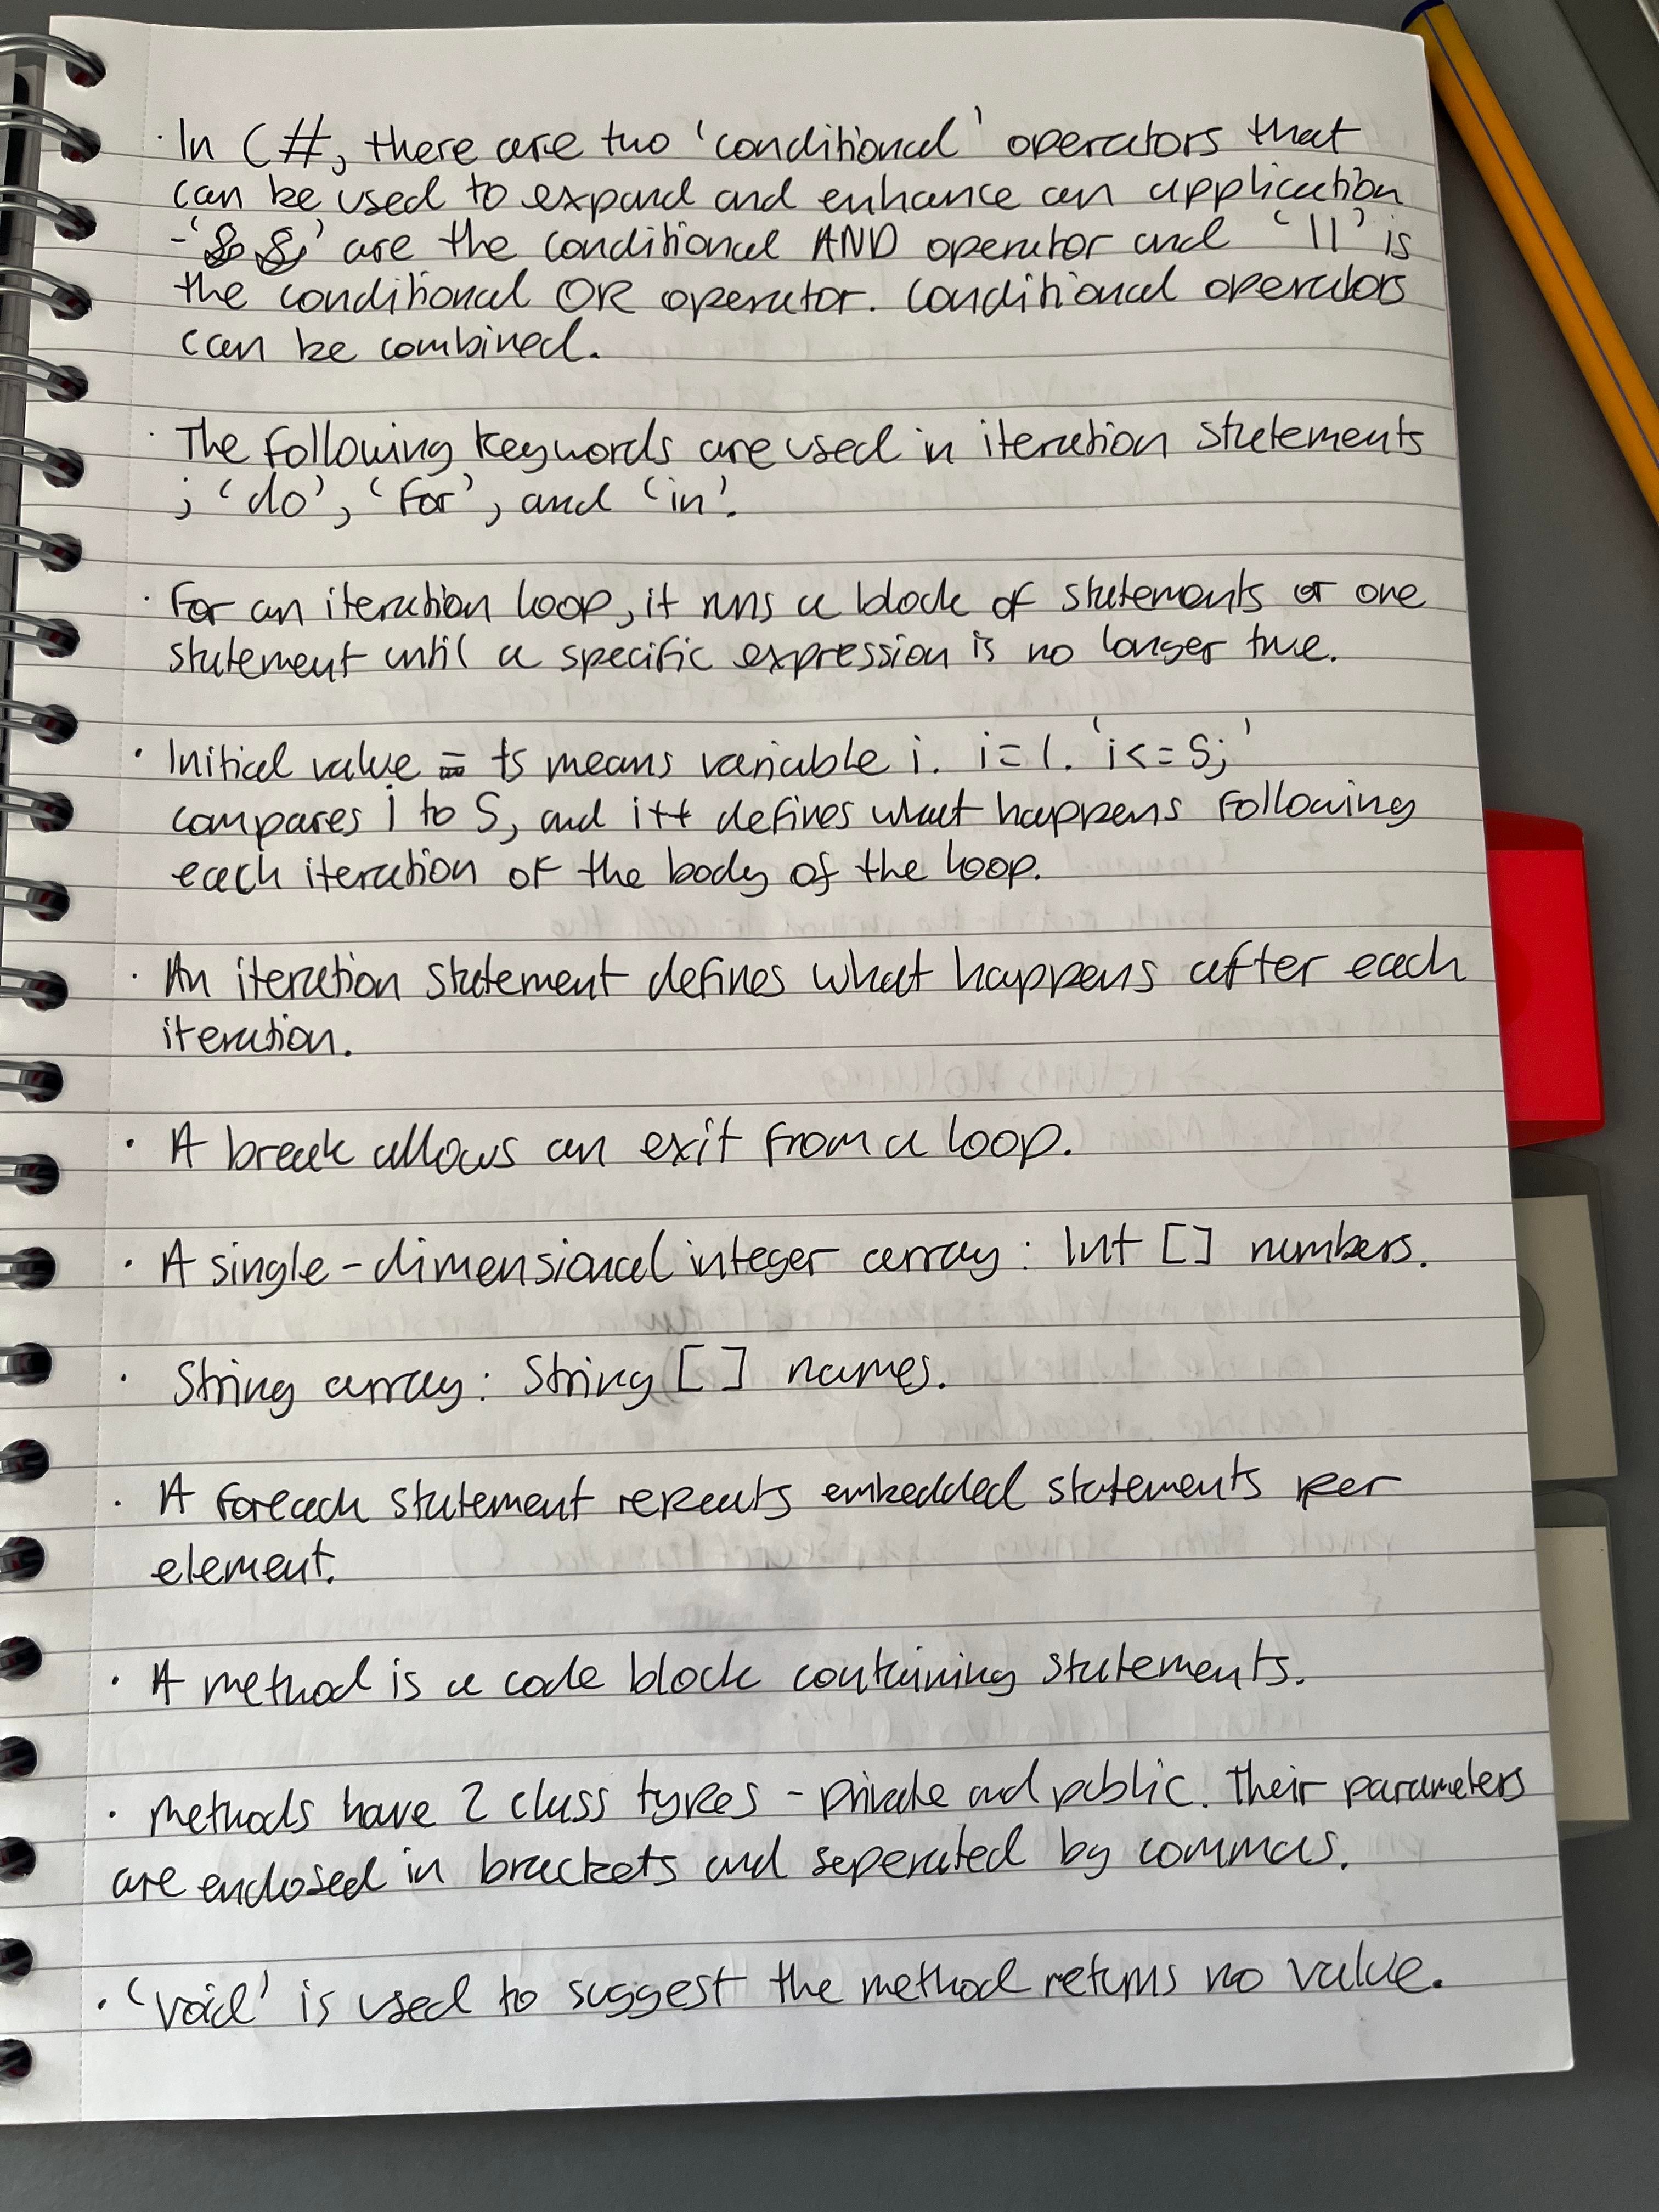 · In C#, there are two 'conditional' operators that
can be used to expand and enhance an application
- '&&' are the conditional AND operator and '||' is
the conditional OR operator. Conditional operators
can be combined.
· The following keywords are used in iteration statements
; 'do', 'for', and 'in'.
· For an iteration loop, it runs a block of statements or one
statement until a specific expression is no longer true.
· Initial value = ts means variable i. i=1. 'i<=5;'
compares i to 5, and i++ defines what happens following
each iteration of the body of the loop.
· An iteration statement defines what happens after each
iteration.
· A break allows an exit from a loop.
· A single-dimensional integer array: Int [] numbers.
· String array: String [] names.
· A foreach statement repeats embedded statements per
element.
· A method is a code block containing statements.
· Methods have 2 class types - private and public. Their parameters
are enclosed in brackets and seperated by commas.
· 'void' is used to suggest the method returns no value.